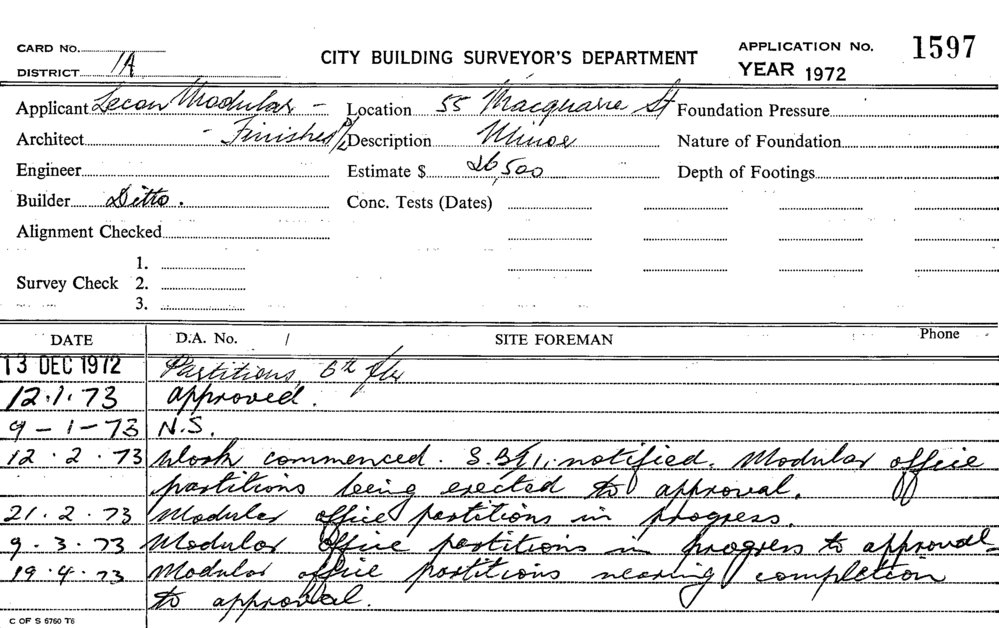 CARD No.
DISTRICT 1A
CITY BUILDING SURVEYOR'S DEPARTMENT
APPLICATION No. 1597
YEAR 1972
Applicant Lecon Modular - Location 55 Macquarie St Foundation Pressure
Architect - Finishes P/L Description Minor Nature of Foundation
Engineer Estimate $ 26,500 Depth of Footings
Builder Ditto. Conc. Tests (Dates)
Alignment Checked
1.
Survey Check 2.
3.
DATE D.A. No. / SITE FOREMAN Phone
13 DEC 1972 Partitions, 6th flr
12.1.73 approved.
9-1-73 N.S.
12.2.73 Work commenced. notified. Modular office
partitions being erected to approval.
21.2.73 Modular office partitions in progress.
9.3.73 Modular office partitions in progress to approval
19.4.73 Modular office partitions nearing completion
to approval.
C OF S 5760 T6